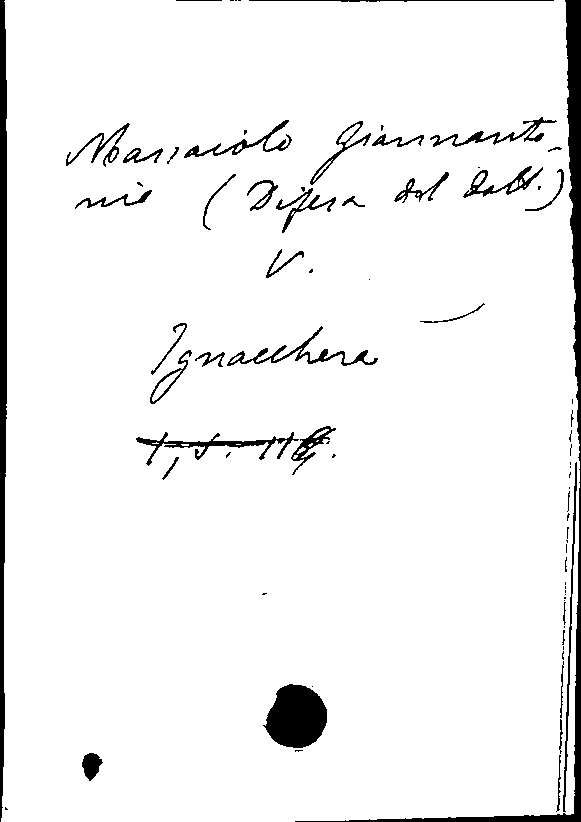 Massaiolo Giannanto-
nio (Difesa del Dott.)
V.
Ignacchera